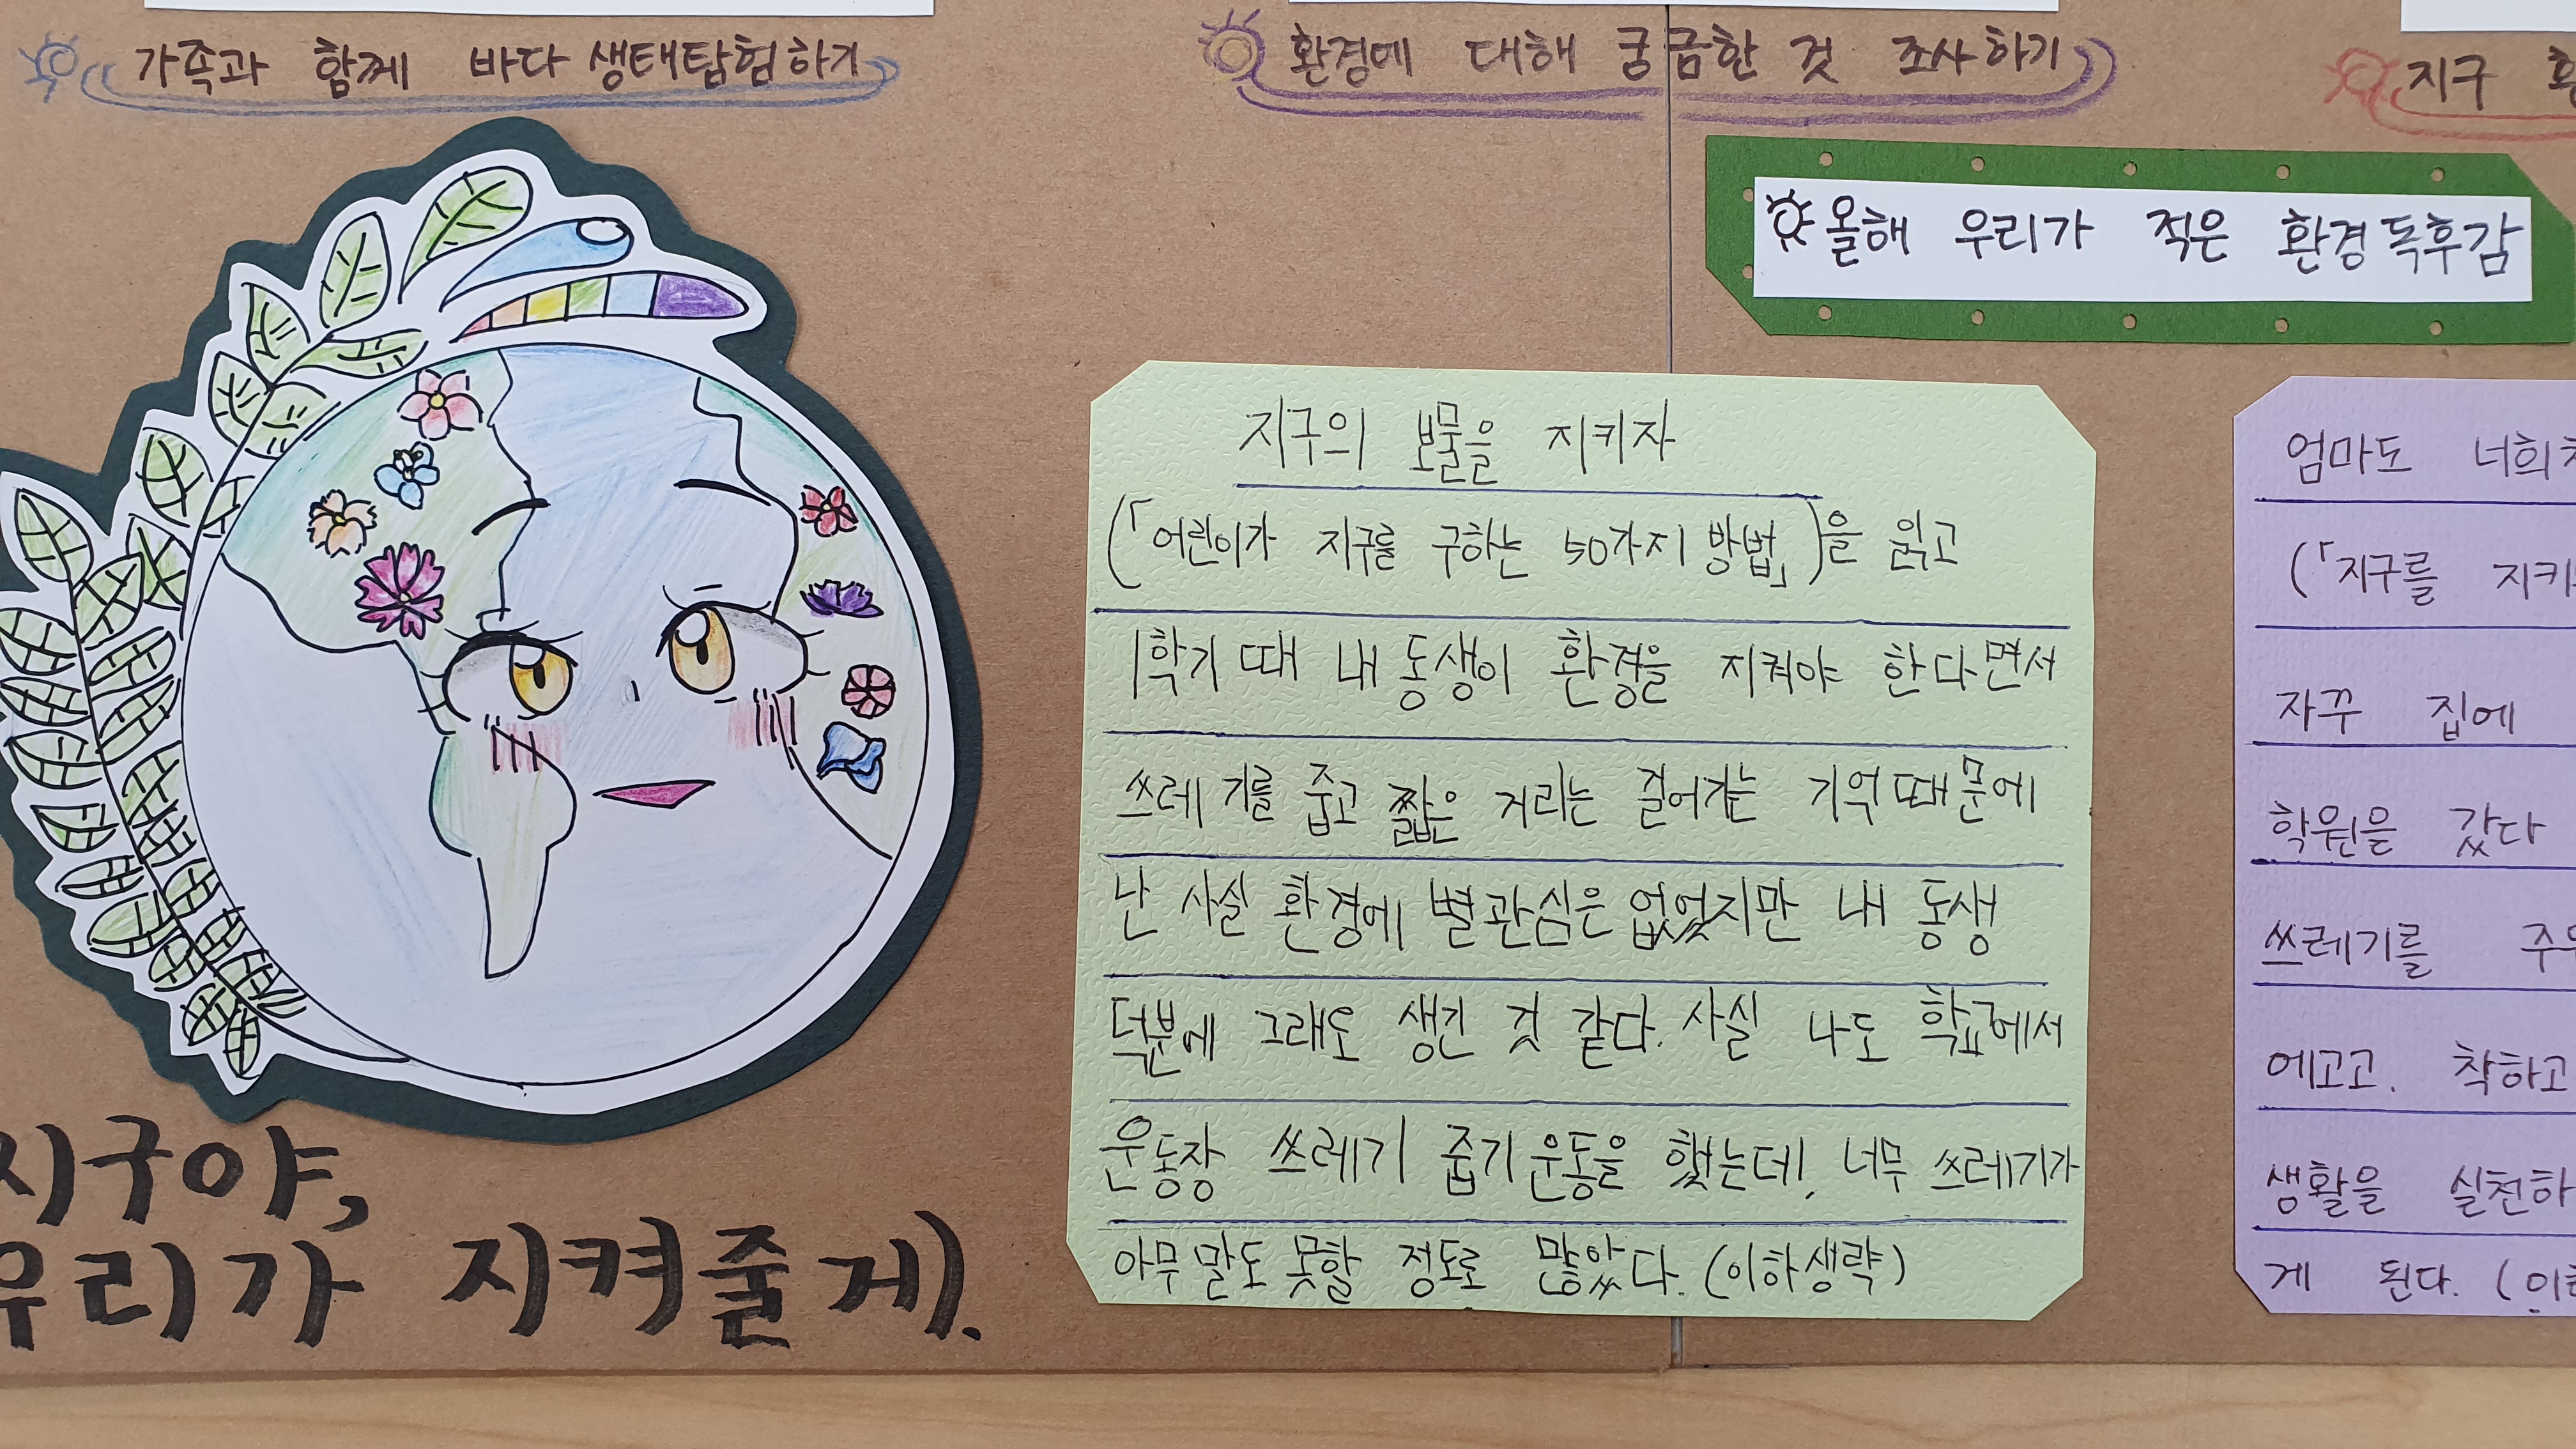 가족과 함께 바다 생태탐험하기
환경에 대해 궁금한 것 조사하기
지구
올해 우리가 적은 환경독후감
지구의 보물을 지키자
(「어린이가 지구를 구하는 50가지 방법」)을 읽고
1학기 때 내 동생이 환경을 지켜야 한다면서
쓰레기를 줍고 짧은 거리는 걸어가는 기억때문에
난 사실 환경에 별관심은 없었지만 내 동생
덕분에 그래도 생긴 것 같다. 사실 나도 학교에서
운동장 쓰레기 줍기운동을 했는데, 너무 쓰레기가
아무말도 못할 정도로 많았다. (이하생략)
엄마도
(「지구를
자꾸 집에
학원을 갔다
쓰레기를
에고고. 착하고
생활을
게 된다.
지구야,
우리가 지켜줄게).